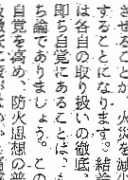 させることが、火災を減少
することになります。結論
は各自の取り扱いの徹底、
即ち自覚にあることは、も
ち論でありましょう。この
自覚を高め、防火思想の普